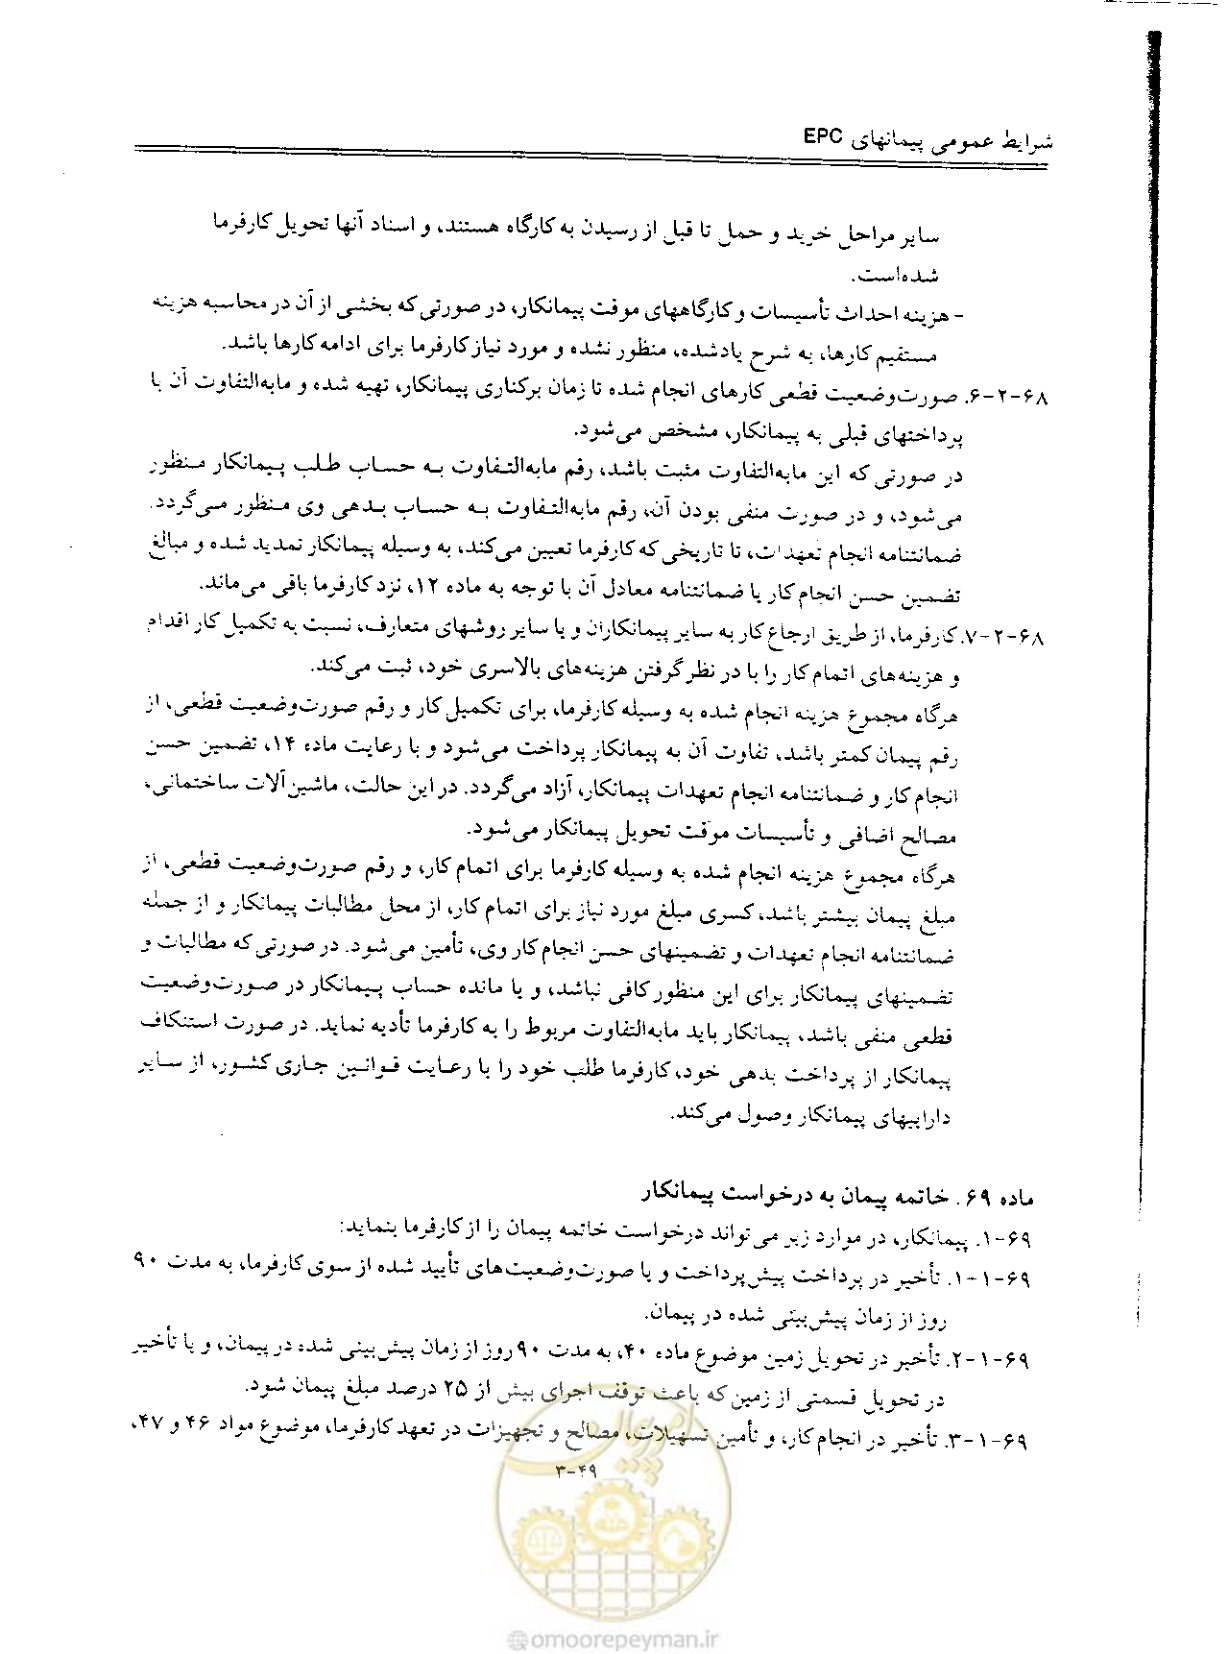 شرایط عمومی پیمانهای EPC
سایر مراحل خرید و حمل تا قبل از رسیدن به کارگاه هستند، و اسناد آنها تحویل کارفرما
شده‌است.
- هزینه احداث تأسیسات و کارگاههای موقت پیمانکار، در صورتی که بخشی از آن در محاسبه هزینه
مستقیم کارها، به شرح یادشده، منظور نشده و مورد نیاز کارفرما برای ادامه کارها باشد.
۶۸-۲-۶. صورت‌وضعیت قطعی کارهای انجام شده تا زمان برکناری پیمانکار، تهیه شده و مابه‌التفاوت آن با
پرداختهای قبلی به پیمانکار، مشخص می‌شود.
در صورتی که این مابه‌التفاوت مثبت باشد، رقم مابه‌التفاوت به حساب طلب پیمانکار منظور
می‌شود، و در صورت منفی بودن آن، رقم مابه‌التفاوت به حساب بدهی وی منظور می‌گردد.
ضمانتنامه انجام تعهدات، تا تاریخی که کارفرما تعیین می‌کند، به وسیله پیمانکار تمدید شده و مبالغ
تضمین حسن انجام کار یا ضمانتنامه معادل آن با توجه به ماده ۱۲، نزد کارفرما باقی می‌ماند.
۶۸-۲-۷. کارفرما، از طریق ارجاع کار به سایر پیمانکاران و یا سایر روشهای متعارف، نسبت به تکمیل کار اقدام
و هزینه‌های اتمام کار را با در نظر گرفتن هزینه‌های بالاسری خود، ثبت می‌کند.
هرگاه مجموع هزینه انجام شده به وسیله کارفرما، برای تکمیل کار و رقم صورت‌وضعیت قطعی، از
رقم پیمان کمتر باشد، تفاوت آن به پیمانکار پرداخت می‌شود و با رعایت ماده ۱۴، تضمین حسن
انجام کار و ضمانتنامه انجام تعهدات پیمانکار، آزاد می‌گردد. در این حالت، ماشین‌آلات ساختمانی،
مصالح اضافی و تأسیسات موقت تحویل پیمانکار می‌شود.
هرگاه مجموع هزینه انجام شده به وسیله کارفرما برای اتمام کار، و رقم صورت‌وضعیت قطعی، از
مبلغ پیمان بیشتر باشد، کسری مبلغ مورد نیاز برای اتمام کار، از محل مطالبات پیمانکار و از جمله
ضمانتنامه انجام تعهدات و تضمینهای حسن انجام کار وی، تأمین می‌شود. در صورتی که مطالبات و
تضمینهای پیمانکار برای این منظور کافی نباشد، و یا مانده حساب پیمانکار در صورت‌وضعیت
قطعی منفی باشد، پیمانکار باید مابه‌التفاوت مربوط را به کارفرما تأدیه نماید. در صورت استنکاف
پیمانکار از پرداخت بدهی خود، کارفرما طلب خود را با رعایت قوانین جاری کشور، از سایر
داراییهای پیمانکار وصول می‌کند.
ماده ۶۹. خاتمه پیمان به درخواست پیمانکار
۶۹-۱. پیمانکار، در موارد زیر می‌تواند درخواست خاتمه پیمان را از کارفرما بنماید:
۶۹-۱-۱. تأخیر در پرداخت پیش‌پرداخت و یا صورت‌وضعیت‌های تأیید شده از سوی کارفرما، به مدت ۹۰
روز از زمان پیش‌بینی شده در پیمان.
۶۹-۱-۲. تأخیر در تحویل زمین موضوع ماده ۴۰، به مدت ۹۰ روز از زمان پیش‌بینی شده در پیمان، و یا تأخیر
در تحویل قسمتی از زمین که باعث توقف اجرای بیش از ۲۵ درصد مبلغ پیمان شود.
۶۹-۱-۳. تأخیر در انجام کار، و تأمین تسهیلات، مصالح و تجهیزات در تعهد کارفرما، موضوع مواد ۴۶ و ۴۷،
۳-۴۹
امور پیمان
@omoorepeyman.ir